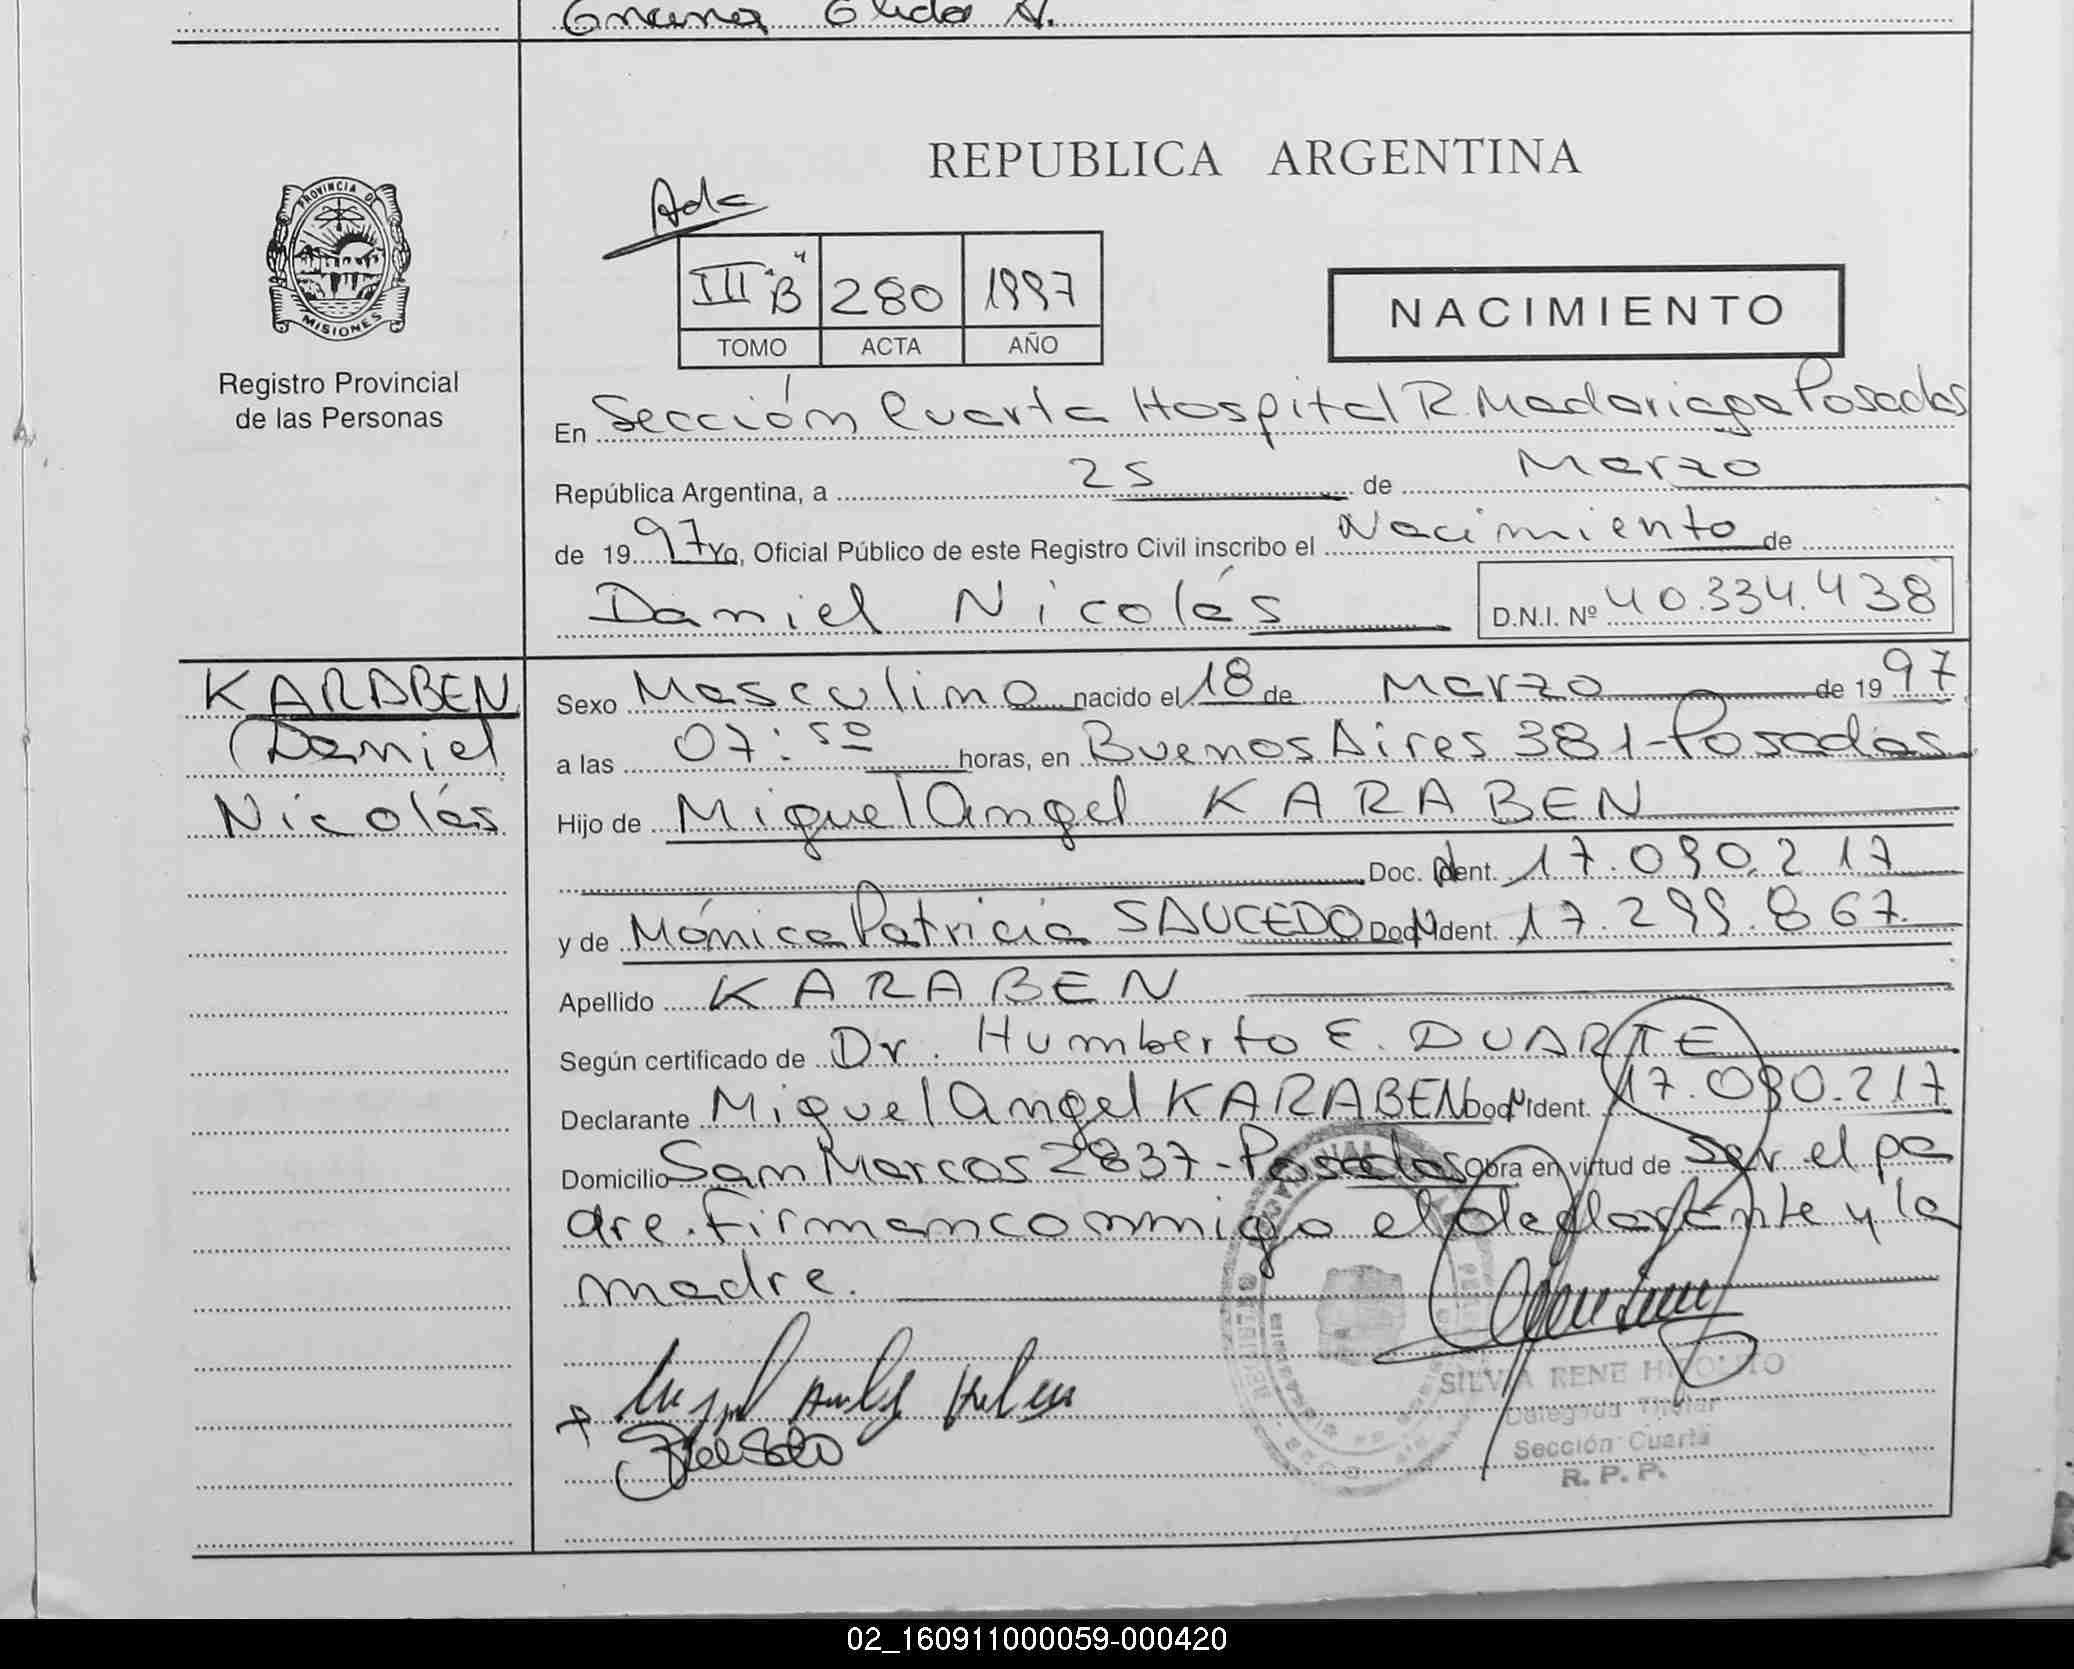 Elida N.
PROVINCIA DE
MISIONES
Registro Provincial
de las Personas
REPUBLICA ARGENTINA
III "B" 280 1997
TOMO ACTA AÑO
NACIMIENTO
En Sección Cuarta Hospital R. Madariaga Posadas
República Argentina, a 25 de Marzo
de 1997 Yo, Oficial Público de este Registro Civil inscribo el Nacimiento de
Daniel Nicolás D.N.I. Nº 40.334.438
KARABEN
Daniel
Nicolás
Sexo Masculino nacido el 18 de Marzo de 1997
a las 07:50 horas, en Buenos Aires 381-Posadas
Hijo de Miguel Angel KARABEN
Doc. Ident. 17.090.217
y de Mónica Patricia SAUCEDO Doc. Ident. 17.299.867
Apellido KARABEN
Según certificado de Dr. Humberto E. DUARTE
Declarante Miguel Angel KARABEN Doc. Ident. 17.090.217
Domicilio San Marcos 2837-Posadas Obra en virtud de ser el pa
dre. Firman conmigo el declarante y la
madre.
SILVIA RENE HIPOLITO
Delegada Titular
Sección Cuarta
R. P. P.
02_160911000059-000420